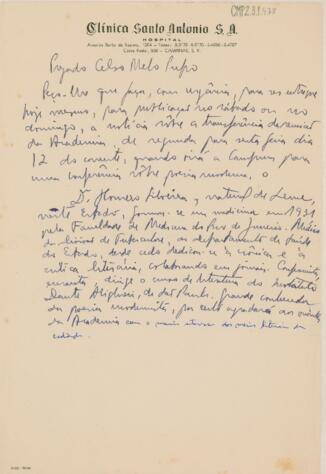 CMP2.3.1.438
Clínica Santo Antonio S. A.
HOSPITAL
Prezado Celso Melo Pupo
Peço-lhe que faça, com urgência, para ser entregue
hoje mesmo, para publicação no sábado ou no
domingo, a notícia sôbre a transferência da reunião
da Academia, de segunda para sexta feira dia
12 do corrente, quando virá a Campinas para
uma conferência sôbre poesia moderna, o
Dr. Homero Silveira, natural de Leme,
neste Estado, formou-se em medicina em 1931
pela Faculdade de Medicina do Rio de Janeiro. Médico
da divisão de Tuberculose, do departamento de Saúde
do Estado, desde cedo dedicou-se à crônica e à
crítica literária, colaborando em jornais.
dirige o curso de literatura do Instituto
Dante Alighieri, de São Paulo. Grande conhecedor
da poesia modernista, por certo agradará aos ouvintes
da Academia com o
cidade.